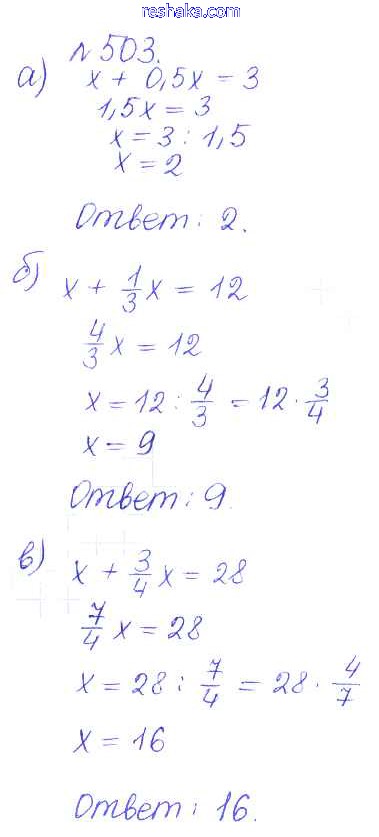 www.reshak.com
reshaka.com
№503.
а) x + 0,5x = 3
1,5x = 3
x = 3 : 1,5
x = 2
Ответ: 2.
б) x + 1/3 x = 12
4/3 x = 12
x = 12 : 4/3 = 12 · 3/4
x = 9
Ответ: 9.
в) x + 3/4 x = 28
7/4 x = 28
x = 28 : 7/4 = 28 · 4/7
x = 16
Ответ: 16.